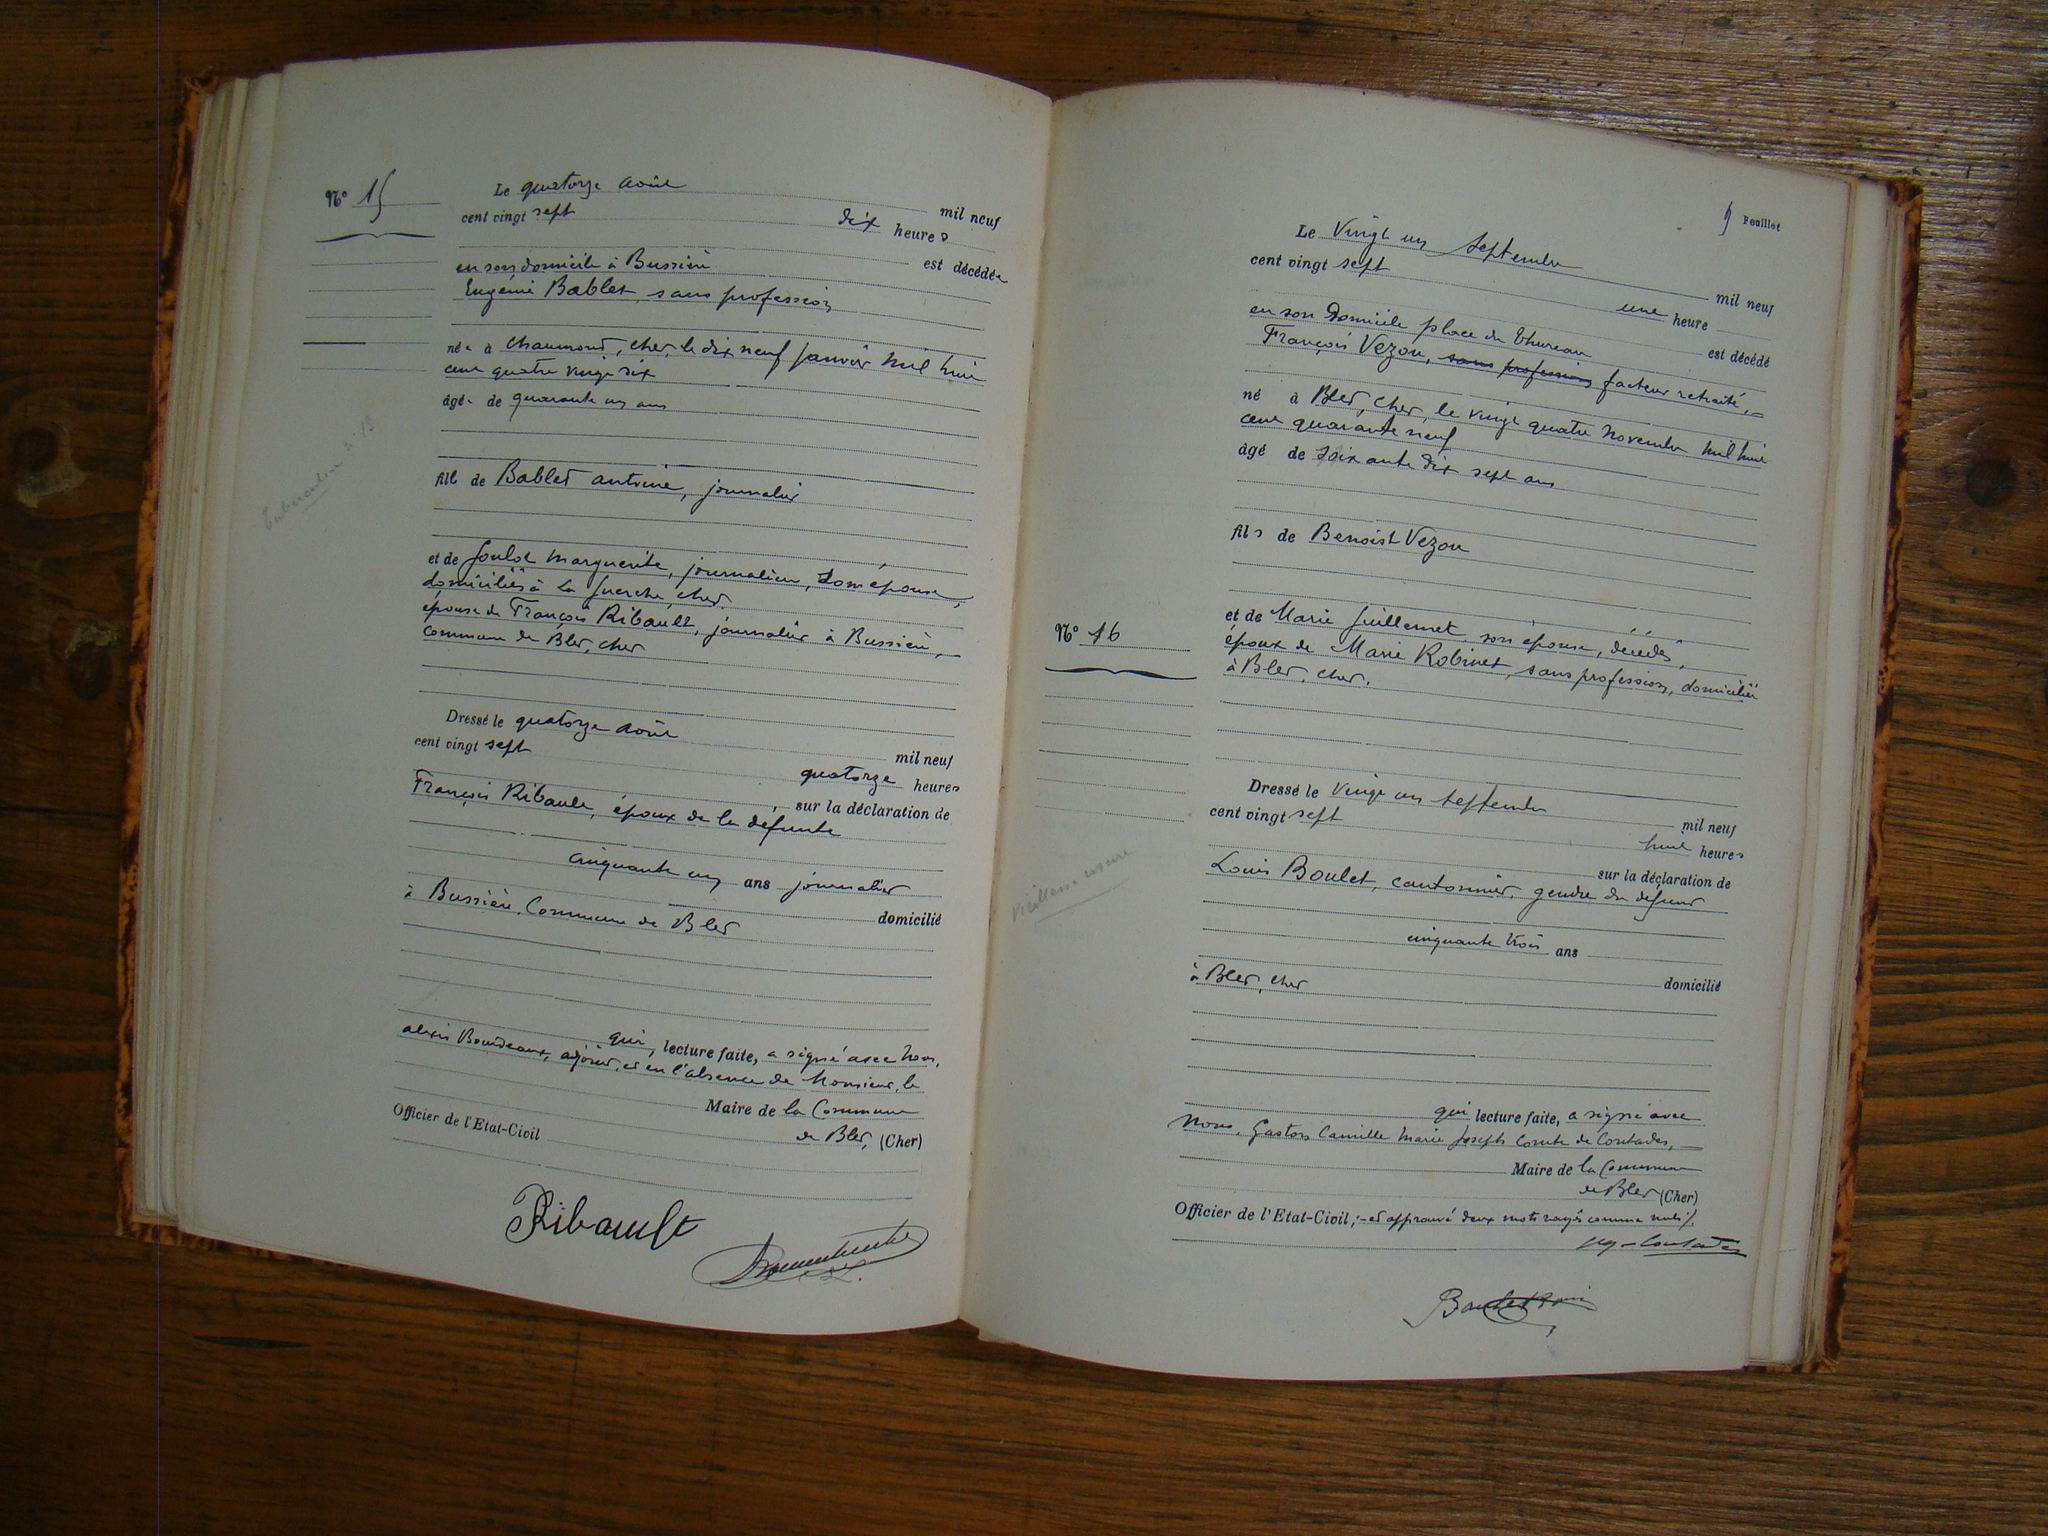 Nº 15
Le quatorze août mil neuf
cent vingt sept dix heures
est décédée
en son domicile à Bussière
Eugénie Bablet, sans profession
née à Chaumont, Cher, le dix neuf janvier mil huit
cent quatre vingt six
âgée de quarante un ans
fille de Bablet Antoine, journalier
et de Goulot Marguerite, journalière, son épouse,
domiciliés à La Guerche, Cher.
épouse de François Ribault, journalier à Bussière,
Commune de Blet, Cher
Dressé le quatorze août mil neuf
cent vingt sept quatorze heures
, sur la déclaration de
François Ribault, époux de la défunte
cinquante un ans journalier
domicilié
à Bussière, Commune de Blet
qui, lecture faite, a signé avec Nous,
Alexis Bourdeaux, adjoint, et en l'absence de Monsieur, le
Maire de la Commune
de Blet, (Cher)
Officier de l'Etat-Civil
Ribault
Feuillet
Nº 16
Le Vingt un Septembre mil neuf
cent vingt sept
une heure
en son Domicile place du Thureau est décédé
François Vezon, sans profession facteur retraité,
né à Blet, Cher, le vingt quatre Novembre mil huit
cent quarante neuf
âgé de soixante dix sept ans
fils de Benoist Vezon
et de Marie Guillemet son épouse, décédés,
époux de Marie Robinet, sans profession, domiciliée
à Blet, Cher.
Dressé le vingt un septembre mil neuf
cent vingt sept huit heures
sur la déclaration de
Louis Boulet, cantonnier, gendre du défunt
cinquante trois ans
domicilié
à Blet, Cher
Vieillesse usure
qui lecture faite, a signé avec
Nous, Gaston Camille Marie Joseph Comte de Contades,
Maire de la Commune
de Blet (Cher)
Officier de l'Etat-Civil ; et approuvé deux mots rayés comme nuls.